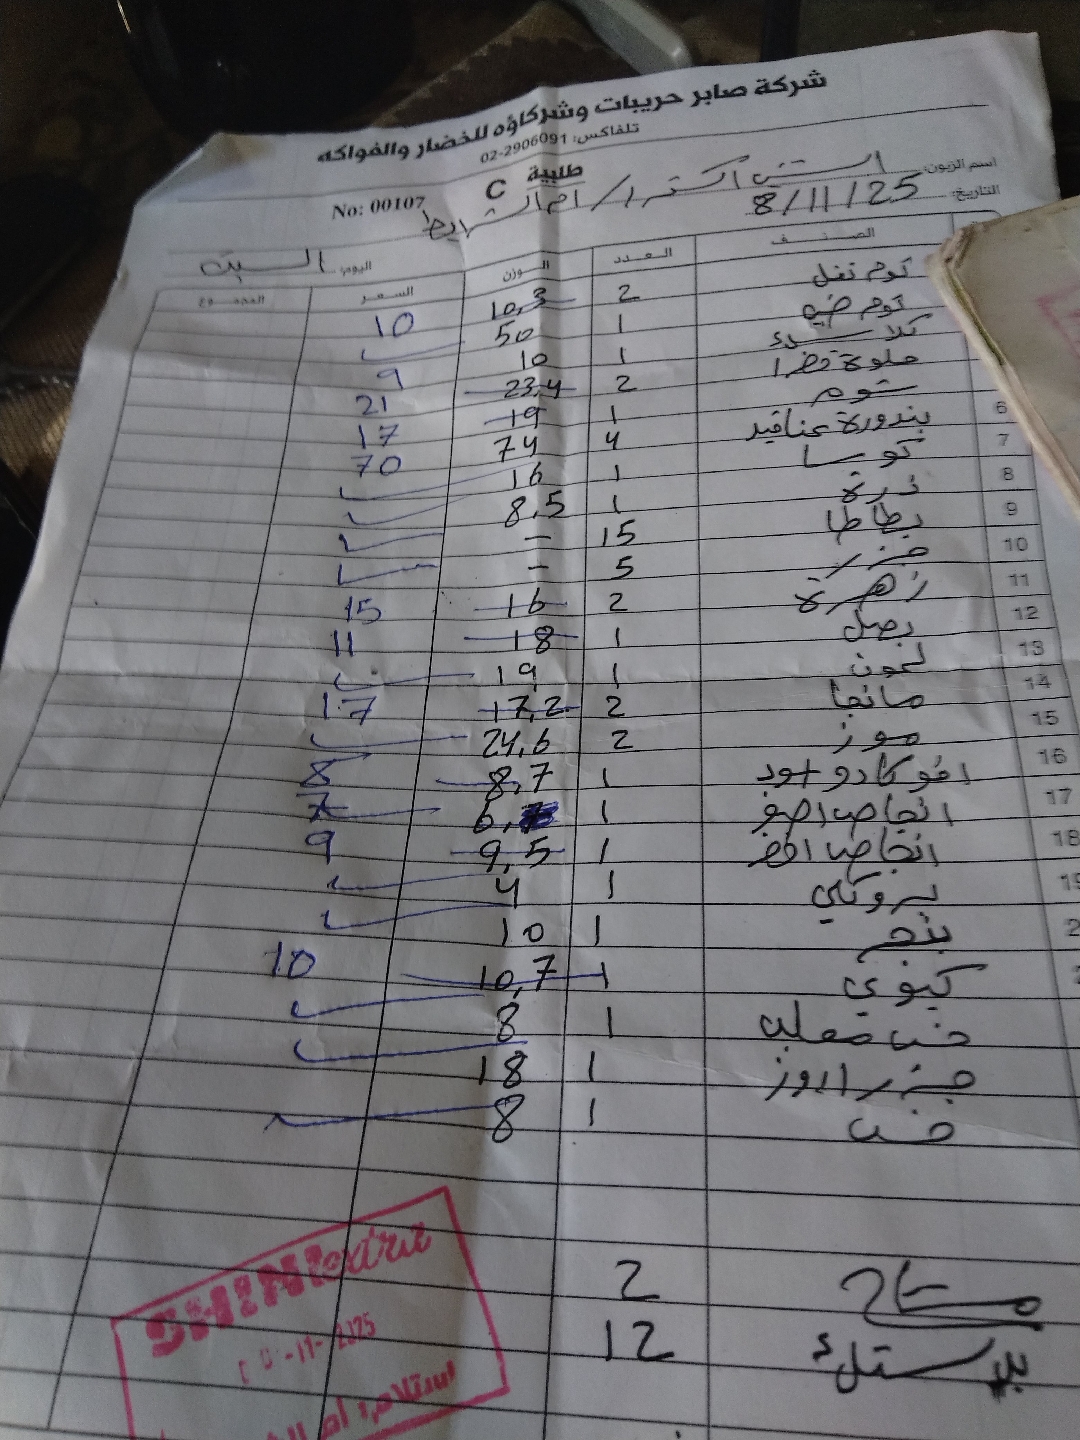 شركة صابر حريبات وشركاؤه للخضار والفواكه
تلفاكس: 02-2906091
طلبية C
No: 00107
اسم الزبون: اكسترا / ام الشرايط
التاريخ: 8/11/25
اليوم: السبت
الصنف العدد الوزن السعر المجموع
2 10,3 10
توم 1 50
1 10 9
2 23,4 21
ثوم 1 19 17
6 بندورة عناقيد 4 74 70
7 كوسا 1 16
8 ذرة 1 8,5
9 بطاطا 15 -
10 جزر 5 -
11 زهرة 2 16 15
12 بصل 1 18 11
13 لمون 1 19
14 مانجا 2 17,2 17
15 موز 2 24,6
16 افوكادو اسود 1 8,7 8
17 انجاص اصفر 1 6, 7
18 انجاص اخضر 1 9,5 9
19 بروكلي 1 4
بنجر 1 10
كيوي 1 10,7 10
خس 1 8
جزر 1 18
خس 1 8
2
بلاستك 12
SHINI extra
-11- 2025
استلام: ام